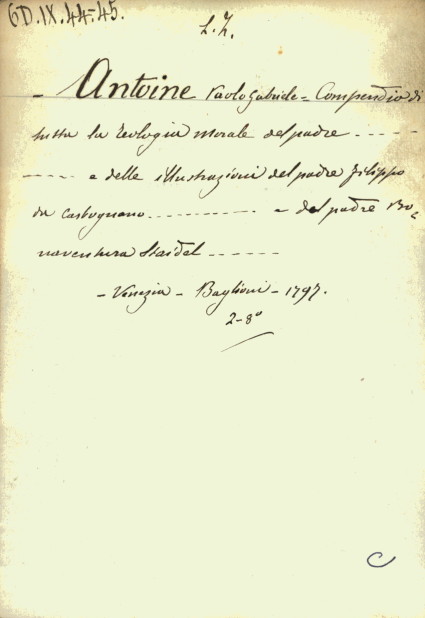 6D.IX.44-45.
L. Z.
- Antoine Paolo Gabriele - Compendio di
tutta la teologia morale del padre - - - - -
- - - - - e delle illustrazioni del padre Filippo
da Carbognano - - - - - - - - - - - e del padre Bo-
naventura Staidel - - - - - -
- Venezia - Baglioni - 1797.
2-8°
C